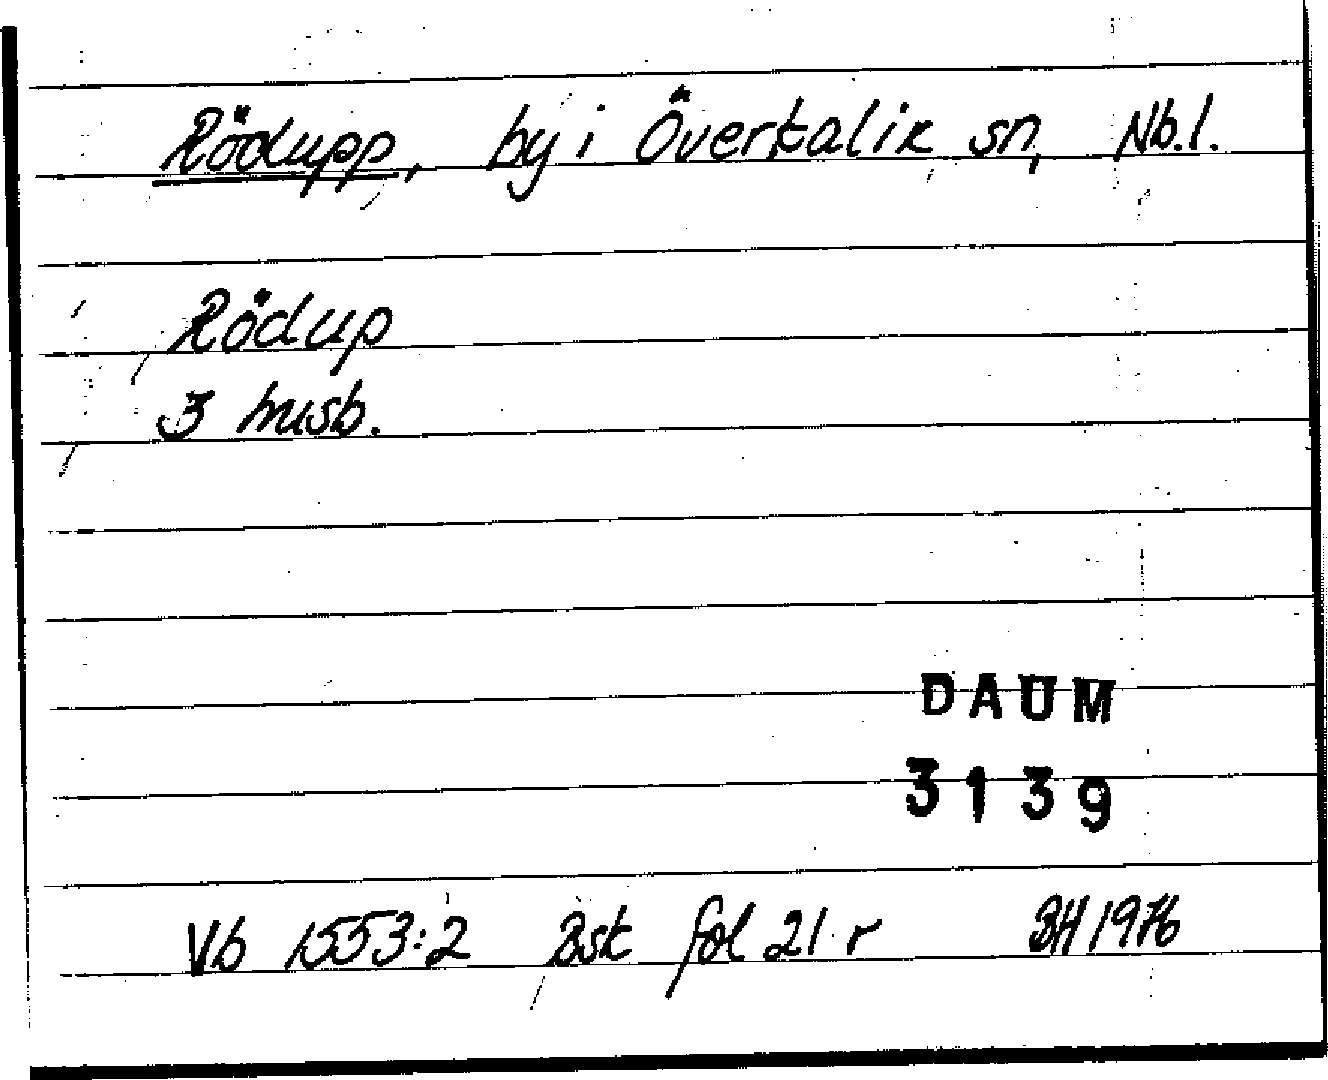 Rödupp, by i Överkalix sn, Nb.l.
Rödup
3 husb.
DAUM
3139
Vb 1553:2 Bsk fol 21 r BH 1976